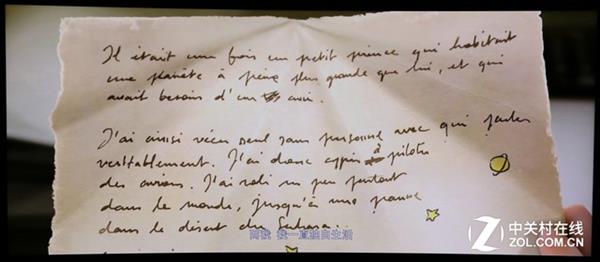 Il était une fois un petit prince qui habitait
une planète à peine plus grande que lui, et qui
avait besoin d'un ami.
J'ai ainsi vécu seul sans personne avec qui parler
véritablement. J'ai donc appris à piloter
des avions. J'ai volé un peu partout
dans le monde, jusqu'à une panne
dans le désert du Sahara.
而我 我一直独自生活
中关村在线
ZOL.COM.CN